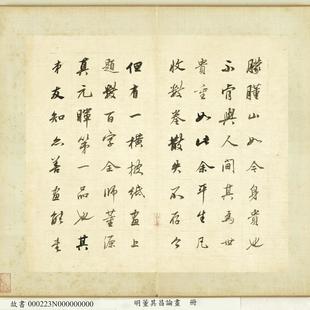 朦朧山如今身貴也
不肯與人間其為世
貴重如此余平生凡
收數卷散失不存今
但有一橫披紙畫上
題數百字全師董源
真元暉第一品也其
弟友知亦善畫能
故書 000223N000000000
明董其昌論畫 冊